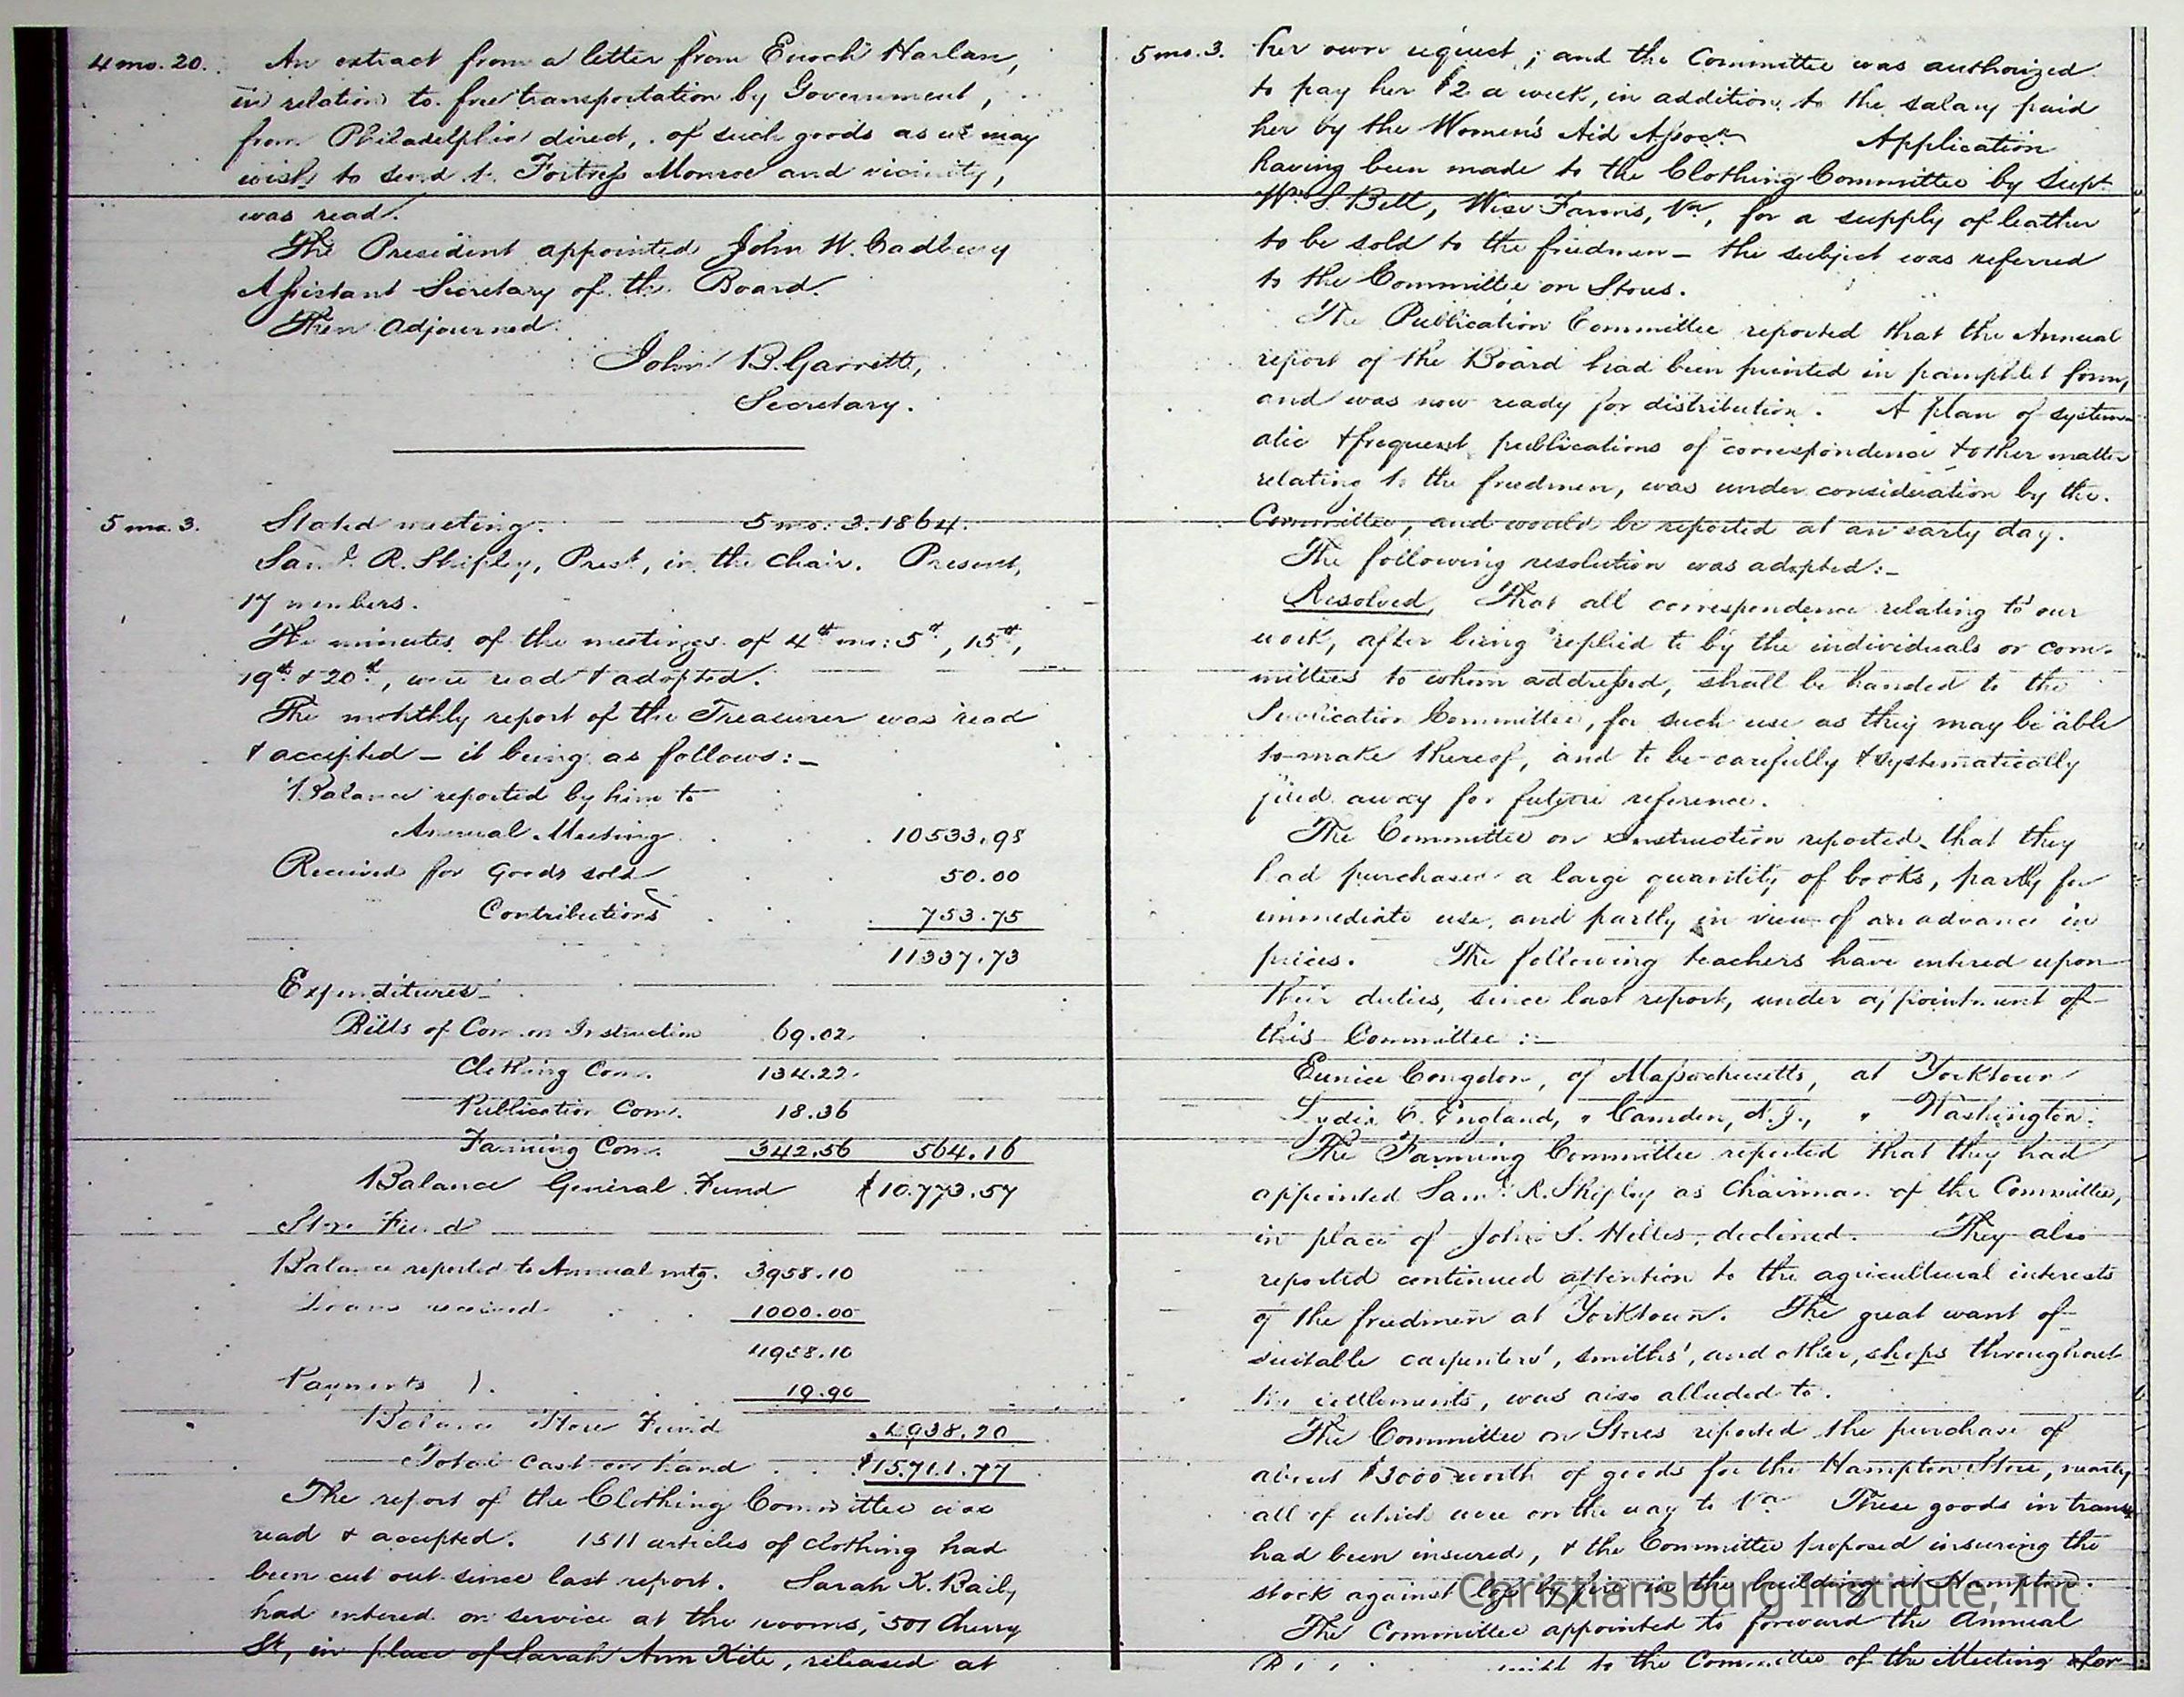 4 mo. 20. An extract from a letter from Enoch Harlan,
in relation to free transportation by Government,
from Philadelphia direct, of such goods as we may
wish to send to Fortress Monroe and vicinity,
was read.
The President appointed John W. Cadbury
Assistant Secretary of the Board.
Then adjourned.
John B. Garrett,
Secretary.
5 mo. 3. Stated meeting. 5 mo. 3. 1864.
Saml. R. Shipley, Prest, in the chair. Present,
17 members.
The minutes of the meetings of 4th mo: 5th, 15th,
19th & 20th, were read & adopted.
The monthly report of the Treasurer was read
& accepted – it being as follows:–
Balance reported by him to
Annual Meeting 10533.98
Received for Goods sold 50.00
Contributions 753.75
11337.73
Expenditures
Bills of Com. on Instruction 69.02
Clothing Com. 134.22
Publication Com. 18.36
Farming Com. 342.56 564.16
Balance General Fund $10.773.57
Store Fund
Balance reported to Annual mtg. 3958.10
Loans received 1000.00
4958.10
Payments 19.90
Balance Store Fund 4938.20
Total Cash on hand $15.711.77
The report of the Clothing Committee was
read & accepted. 1511 articles of clothing had
been cut out since last report. Sarah K. Baily
had entered on service at the rooms, 501 Cherry
St, in place of Sarah Ann Kite, released at
5 mo. 3. her own request; and the Committee was authorized
to pay her $2 a week, in addition to the salary paid
her by the Women's Aid Assocn. Application
having been made to the Clothing Committee by Supt
Wm S. Bell, Wise Farms, Va, for a supply of leather
to be sold to the freedmen – the subject was referred
to the Committee on Stores.
The Publication Committee reported that the Annual
report of the Board had been printed in pamphlet form,
and was now ready for distribution. A plan of system-
atic & frequent publications of correspondence & other matter
relating to the freedmen, was under consideration by the
Committee, and would be reported at an early day.
The following resolution was adopted:–
Resolved, That all correspondence relating to our
work, after being replied to by the individuals or com-
mittees to whom addressed, shall be handed to the
Publication Committee, for such use as they may be able
to make thereof, and to be carefully & systematically
filed away for future reference.
The Committee on Instruction reported that they
had purchased a large quantity of books, partly for
immediate use, and partly in view of an advance in
prices. The following teachers have entered upon
their duties, since last report, under appointment of
this Committee :–
Eunice Congdon, of Massachusetts, at Yorktown
Lydia C. England, " Camden, N.J., " Washington.
The Farming Committee reported that they had
appointed Saml. R. Shipley as Chairman of the Committee,
in place of John S. Hilles, declined. They also
reported continued attention to the agricultural interests
of the freedmen at Yorktown. The great want of
suitable carpenters', smiths', and other, shops throughout
the settlements, was also alluded to.
The Committee on Stores reported the purchase of
about $3000 worth of goods for the Hampton Store, nearly
all of which were on the way to Va. These goods in transit
had been insured, & the Committee proposed insuring the
stock against loss by fire in the building at Hampton.
The Committee appointed to forward the Annual
to the Committee of the Meeting for
Christiansburg Institute, Inc